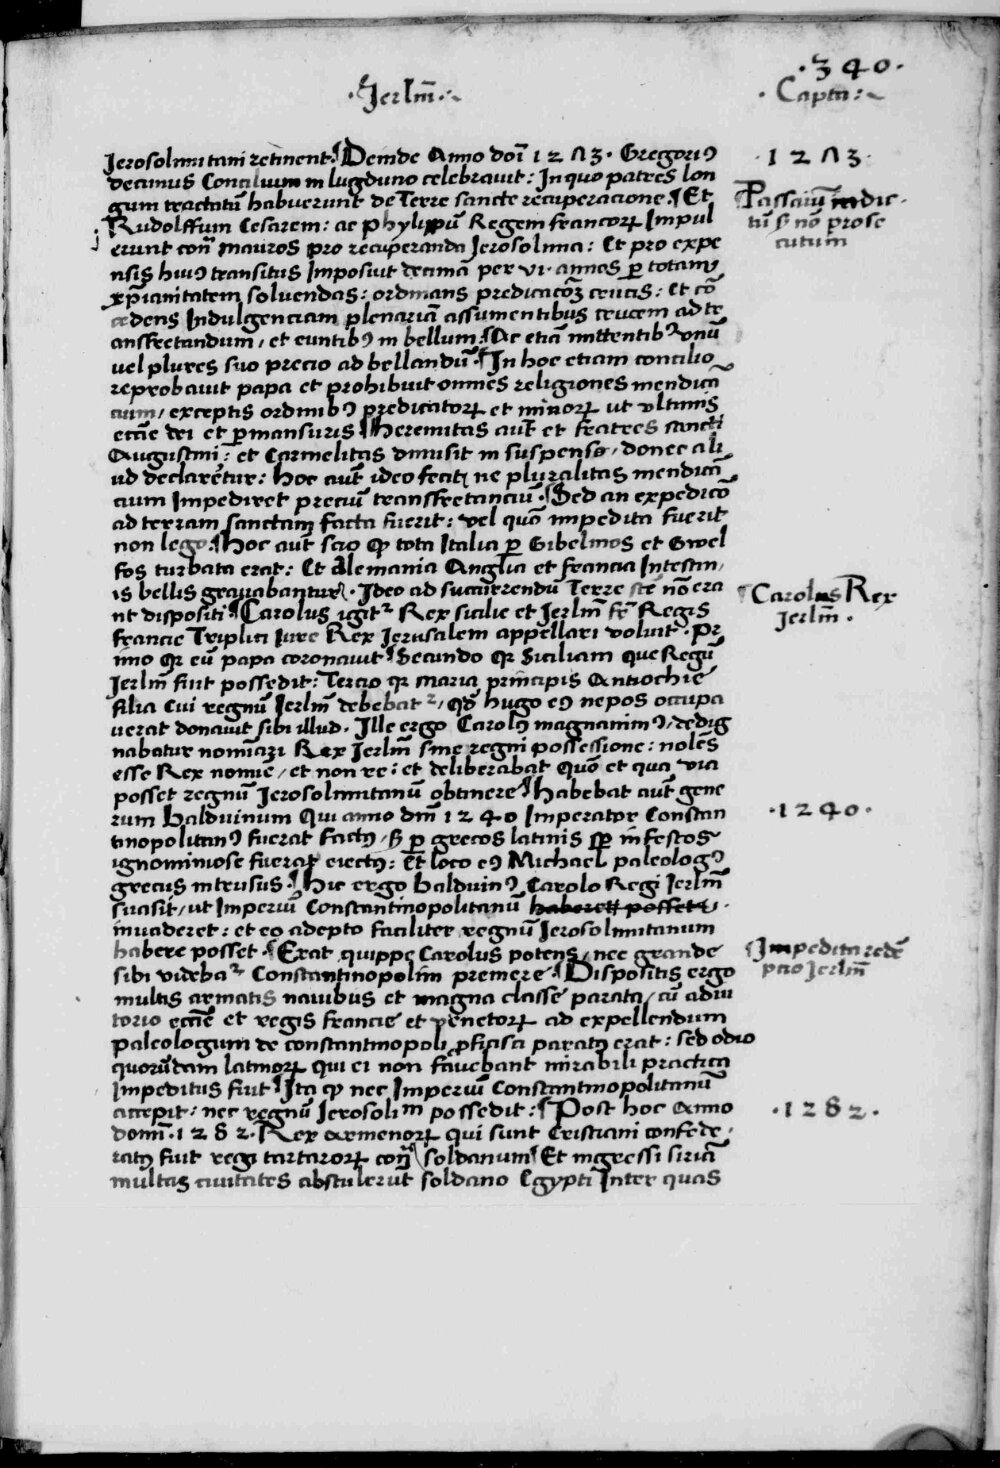 · 340 ·
· Jerlm̄ · ~
· Capta : ~
Jerosolimitani retinent. ¶ Deinde Anno doī 1273 · Gregoriꝰ
· 1273 ·
decimus Concilium in lugduno celebravit : In quo patres lon
gum tractatū habuerunt de Terre sancte recuperacione. ¶ Et
Passaiū indic-
tū sꝫ nō prose
cutum
Rudolffum Cesarem : ac Phylippū Regem francorꝝ Impul
erunt conͣ mauros pro recuperanda Jerosolima : Et pro expe
nsis huiꝰ transitus Imposuit decimā per vi annos ꝑ totam
xp̄ianitatem soluendas : ordinans predicacōꝫ crucis : et cō
cedens Indulgenciam plenariā assumentibus crucem ad tr
ansfretandum / et euntibꝰ in bellum : ¶ Ac etiā mittentibꝰ vnū
vel plures suo precio ad bellandū · ¶ In hoc etiam concilio
reprobavit papa et prohibuit omnes religiones mendicā
cium / exceptis ordinibꝰ predicatorꝝ et minorꝝ ut vltimis
eccīe dei et ꝑmansuris ¶ heremitas aut̄ et fratres sancti
Augustini : et Carmelitas dimisit in suspenso / donec ali
ud declaretur : hoc aut̄ ideo fecit ne pluralitas mendicā
cium Impediret preciū transfretanciū · ¶ Sed an expedicō
ad terram sanctam facta fuerit : vel quō impedita fuerit
non lego. ¶ hoc aut̄ scio ꝙ tota Italia ꝑ Gibelinos et Gwel
fos turbata erat : Et Alemania Anglia et francia Intestin
is bellis gravabantur · Ideo ad succurrendū Terre scē nō era
nt dispositi ¶ Carolus igit̄ Rex sicilie et Jerlm̄ fr̄ Regis
¶ Carolus Rex
Jerlm̄ ·
francie Triplici iure Rex Jerusalem appellari voluit · Pr
imo qꝛ eū papa coronavit ¶ Secundo qꝛ Siciliam que Regū
Jerlm̄ fuit possedit : Tercio qꝛ maria principis Antiochie
filia cui regnū Jerlm̄ debebat̄ / qd̄ hugo eiꝰ nepos occupa
verat donavit sibi illud · Ille ergo Carolꝰ magnanimꝰ / dedig
nabatur nominari Rex Jerlm̄ sine regni possessione : nolēs
esse Rex nomīe / et non re : et deliberabat quō et qua via
posset regnū Jerosolimitanū obtinere ¶ habebat aut̄ gene
rum balduinum Qui anno dm̄ 1240 Imperator Constan
· 1240 ·
tinopolitanꝰ fuerat factꝰ / sꝫ ꝑ grecos latinis sꝑ infestos
ignominiose fuerat eiectꝰ : Et loco eiꝰ Michael paleologꝰ
grecus intrusus · ¶ hic ergo balduinꝰ Carolo Regi Jerlm̄
suasit / ut Imperiū Constantinopolitanū haberet posset ·
invaderet : et eo adepto faciliter regnū Jerosolimitanum
habere posset · ¶ Erat quippe Carolus potens / nec grande
¶ Impedita redē
pcio Jerlm̄
sibi videbaͬ Constantinopolim premere · ¶ Dispositis ergo
multis armatis navibus et magna classe parata / cū adiu
torio eccīe et regis francie et venetorꝝ ad expellendum
paleologum de constantinopoli ꝓficisci paratꝰ erat : sed odio
quorūdam latinorꝝ qui ei non favebant mirabili practica
Impeditus fuit ¶ Ita ꝙ nec Imperiū Constantinopolitanū
accepit : nec regnū Jerosolim possedit : ¶ Post hoc Anno
domī · 1282 · Rex armenorꝝ qui sunt Cristiani confede-
· 1282 ·
ratꝰ fuit regi tartarorꝝ conͣ soldanum ¶ Et ingressi siriā
multas civitates abstulerūt soldano Egypti Inter quas